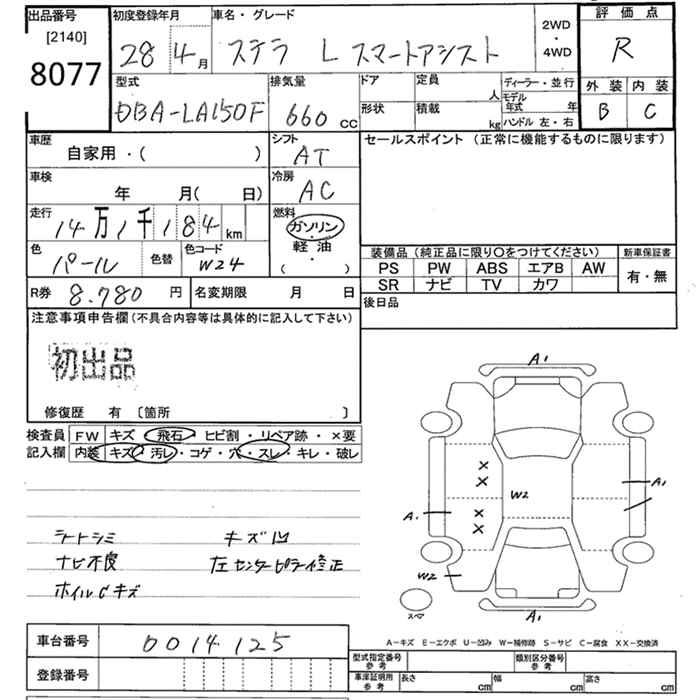 出品番号
[2140]
8077
初度登録年月
28 4月
車名・グレード
ステラ L スマートアシスト
2WD
・
4WD
評価点
R
外装 内装
B C
型式
DBA-LA150F
排気量
660 cc
ドア
定員
人
形状
積載
kg
ディーラー・並行
モデル年式 年
ハンドル 左・右
車歴
自家用・( )
シフト
AT
セールスポイント (正常に機能するものに限ります)
車検
年 月( 日)
冷房
AC
走行
14万1千184km
燃料
ガソリン
・
軽油
( )
色
パール
色替
色コード
W24
装備品 (純正品に限り○をつけてください)
PS PW ABS エアB AW
SR ナビ TV カワ
新車保証書
有・無
R券 8.780円
名変期限 月 日
後日品
注意事項申告欄(不具合内容等は具体的に記入して下さい)
初出品
修復歴 有 〔箇所 〕
検査員記入欄
FW キズ 飛石・ヒビ割・リペア跡・×要
内装 キズ・汚レ・コゲ・穴・スレ・キレ・破レ
シートシミ キズ凹
ナビ不良 左センターピラー修正
ホイルCキズ
A1
X
X
W2
A1
X
A1
X
W2
スペア
A1
A-キズ E-エクボ U-凹み W-補修跡 S-サビ C-腐食 XX-交換済
車台番号 0014125
登録番号
型式指定番号 参考
類別区分番号 参考
車庫証明用 参考
長さ cm
幅 cm
高さ cm